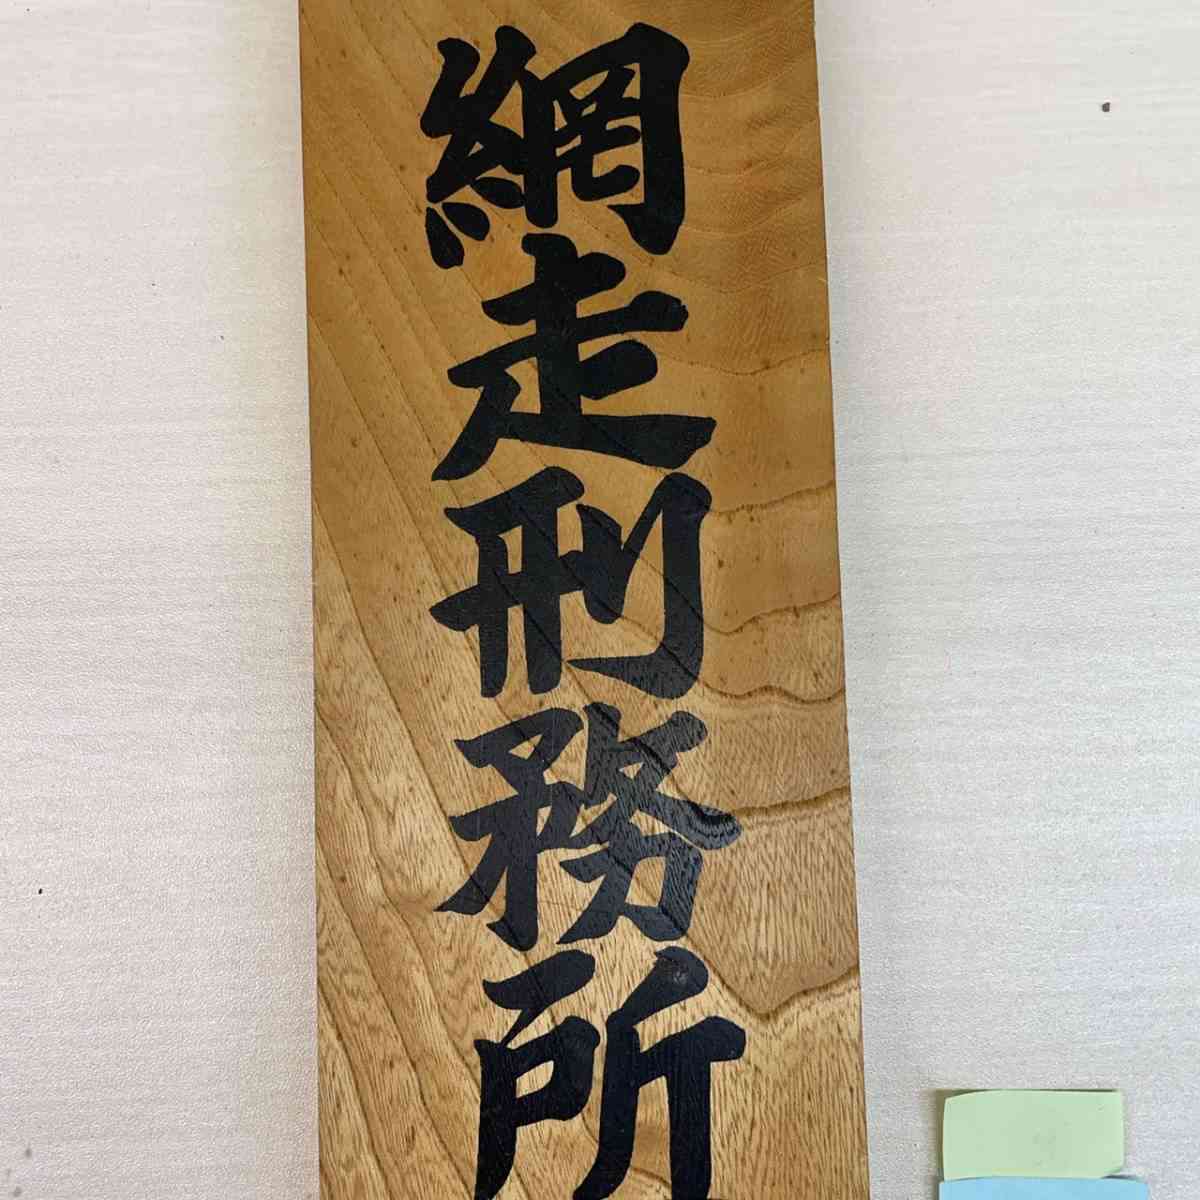 網走刑務所